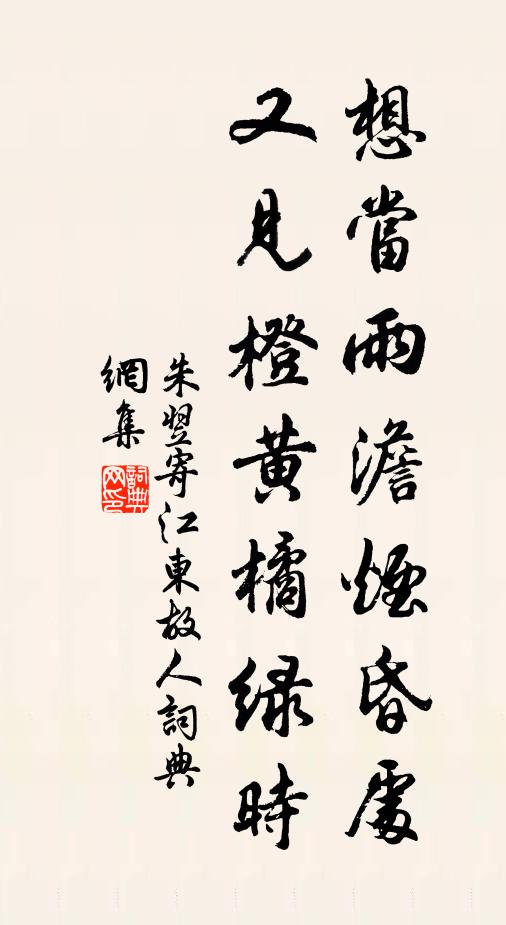 想當雨澹煙昏處
又見橙黃橘綠時
朱翌寄江東故人詞典
網集
詞典網印